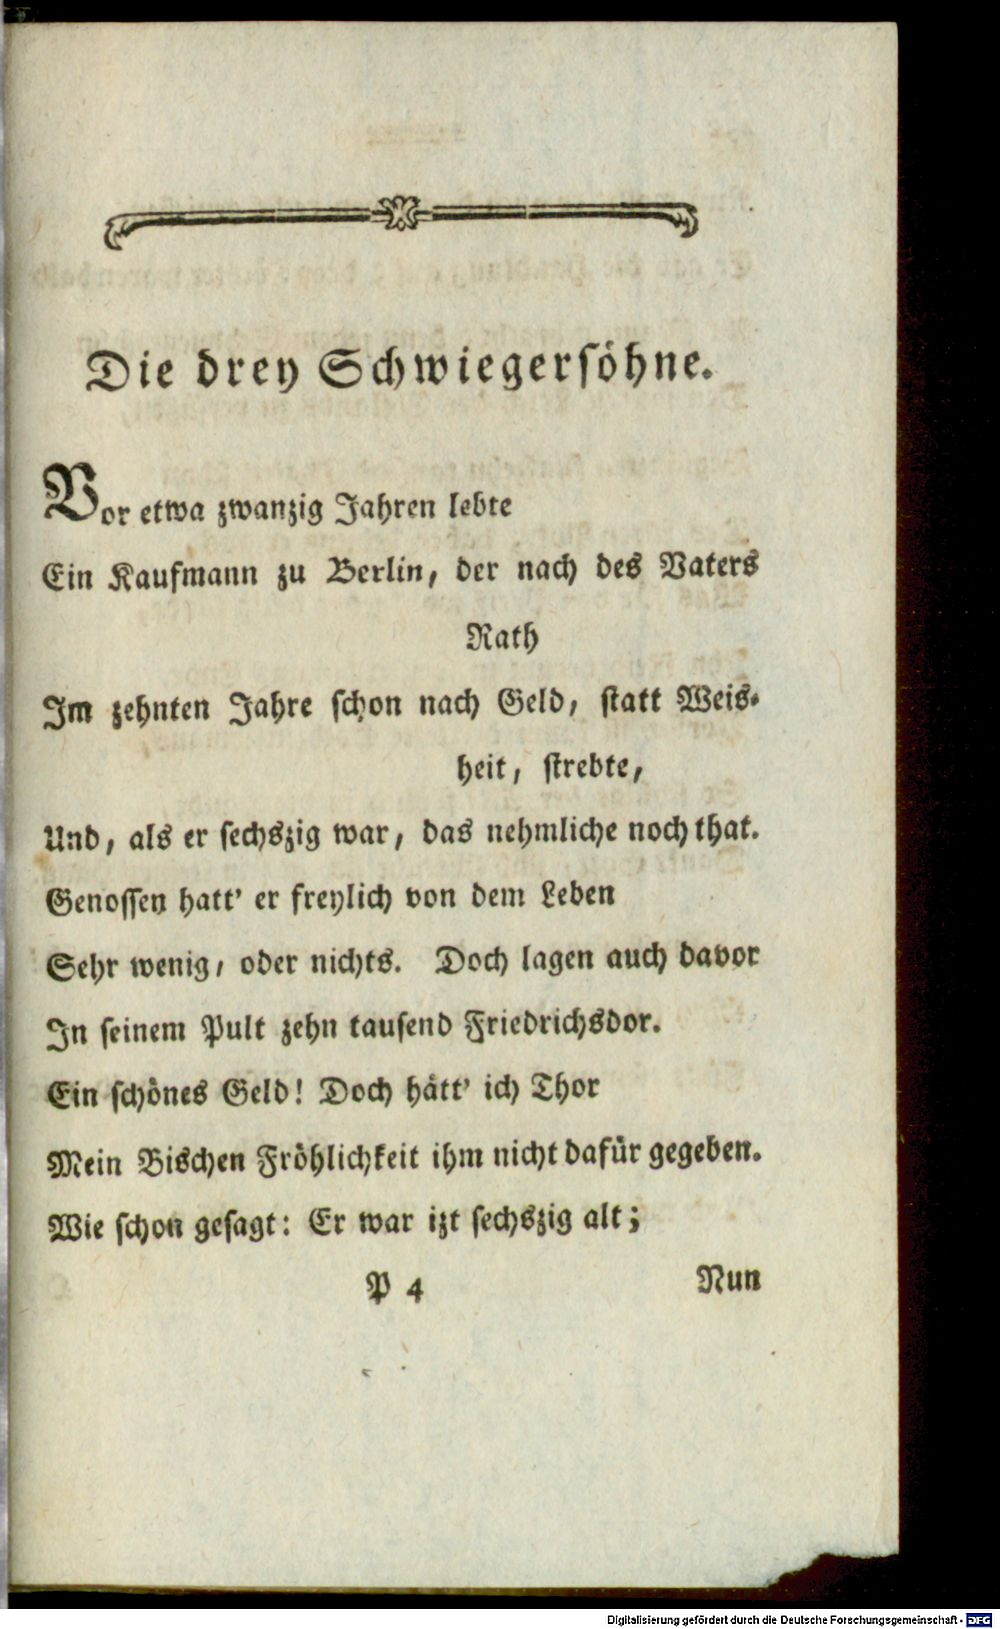 Die drey Schwiegersöhne.
Vor etwa zwanzig Jahren lebte
Ein Kaufmann zu Berlin, der nach des Vaters
Rath
Im zehnten Jahre schon nach Geld, statt Weis-
heit, strebte,
Und, als er sechszig war, das nehmliche noch that.
Genossen hatt' er freylich von dem Leben
Sehr wenig, oder nichts. Doch lagen auch davor
In seinem Pult zehn tausend Friedrichsdor.
Ein schönes Geld! Doch hätt' ich Thor
Mein Bischen Fröhlichkeit ihm nicht dafür gegeben.
Wie schon gesagt: Er war izt sechszig alt;
P 4
Nun
Digitalisierung gefördert durch die Deutsche Forschungsgemeinschaft - DFG